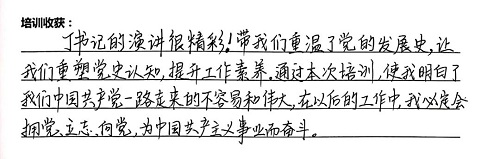 培训收获：
丁书记的演讲很精彩！带我们重温了党的发展史，让
我们重塑党史认知，提升工作素养。通过本次培训，使我明白了
我们中国共产党一路走来的不容易和伟大，在以后的工作中，我必定会
拥党、立志、向党，为中国共产主义事业而奋斗。